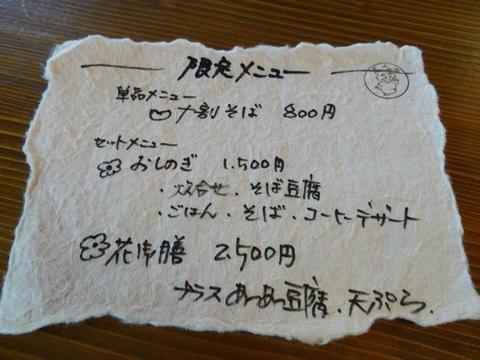 限定メニュー
単品メニュー
十割そば 800円
セットメニュー
おしのぎ 1.500円
・炊合せ・そば豆腐
・ごはん・そば・コーヒーデザート
花御膳 2.500円
プラスあつあつ豆腐、天ぷら.